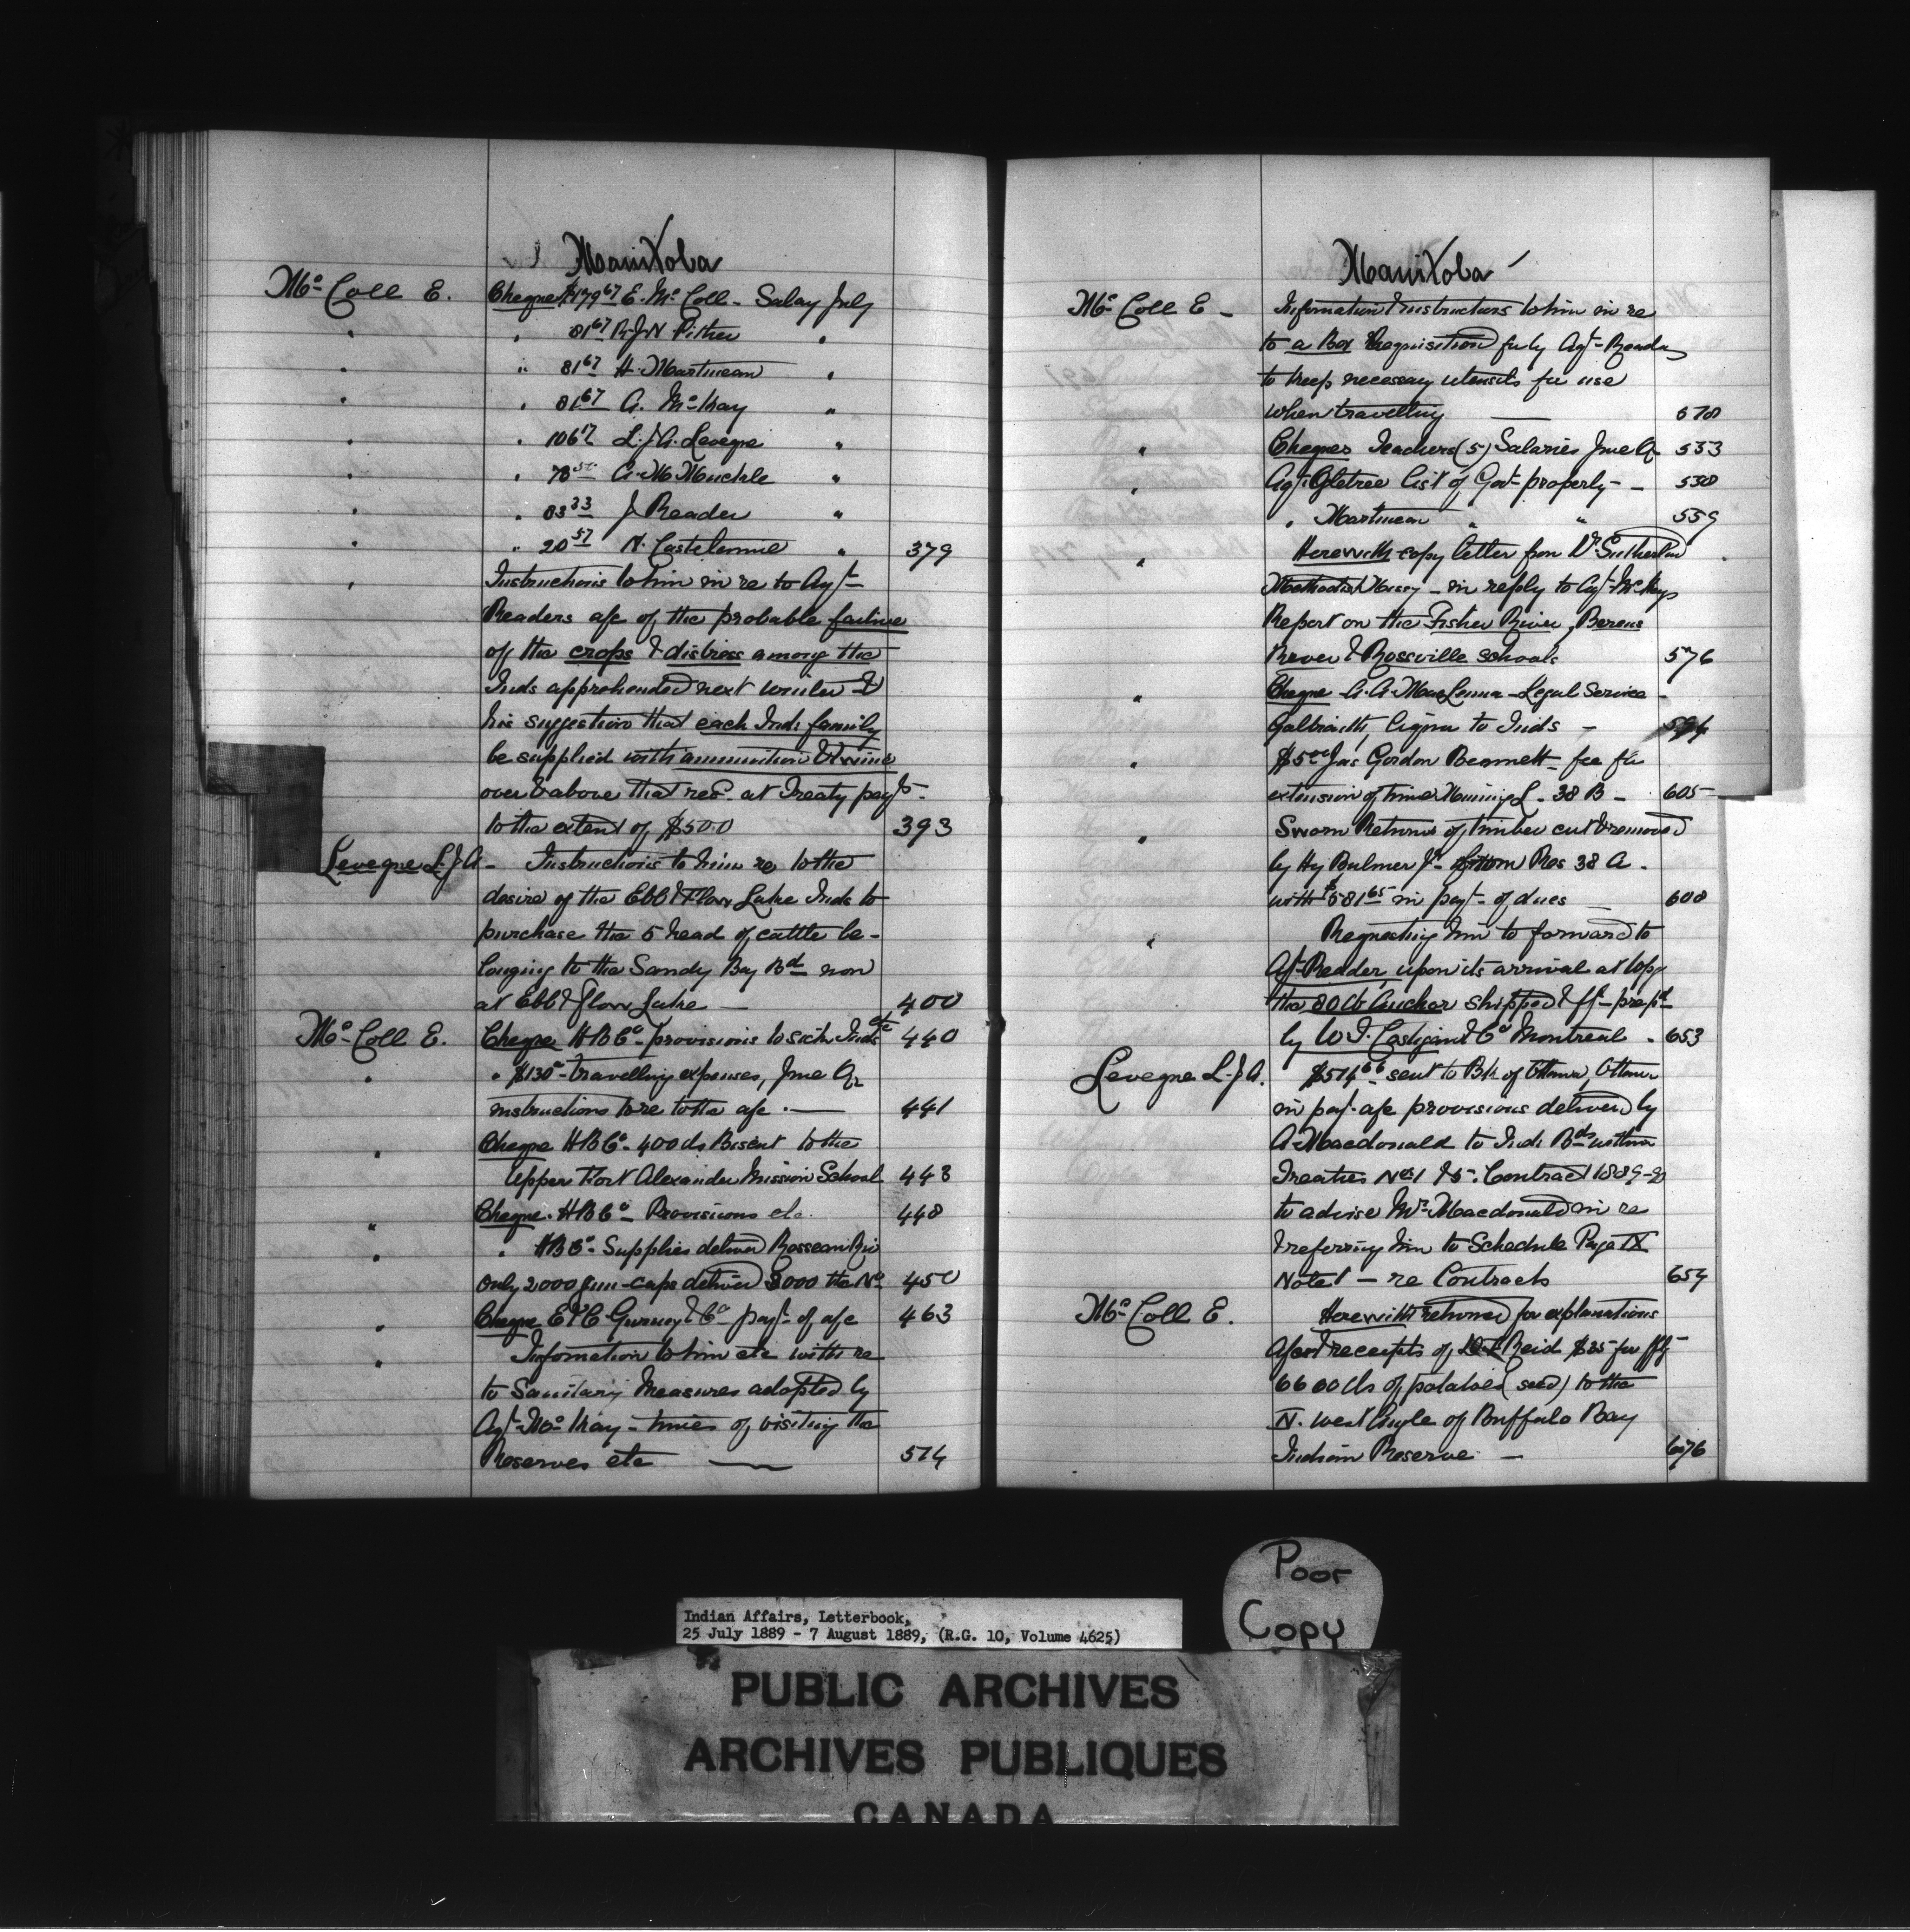 Manitoba
Mc Coll E. Cheque $179 67 E. Mc Coll - Salary July
" " 81 67 R.J.N. Pither "
" " 81 67 H. Martineau "
" " 81 67 A. McKay "
" " 106 17 L.J.A. Leveque "
" " 78 50 A. M. Muckle "
" " 83 33 J Reader "
" " 20 57 N. "
379
" Instructions to him in re to Agt
Readers a/c of the probable failure
of the crops & distress among the
Inds apprehended next winter &
his suggestion that each Ind. family
be supplied with ammunition & twine
over & above that recd. at Treaty payts.
to the extent of $500 393
Leveque L.J.A - Instructions to him re to the
desire of the Ebb & Flow Lake Inds to
purchase the 5 head of cattle be-
longing to the Sandy Bay Bd now
at Ebb & Flow Lake — 400
Mc Coll E. Cheque HBCo - provisions to sick Inds etc 440
" " $130 - travelling expenses, June Qr
instructions to re to the a/c . — 441
" Cheque HBCo - 400 lbs Biscut to the
Upper Fort Alexander Mission School 443
" Cheque. HBCo - Provisions etc. 448
" " HBCo - Supplies deliver Rosseau Riv
only 2000 gun-caps deliver 3000 the No 450
" Cheque E & C Gurney & Co payt of a/c 463
" Information to him etc with re
to Sanitary Measures adopted by
Agt. McKay - times of visiting the
Reserves etc — 514
Manitoba
Mc Coll E - Information & instructions to him in re
to a Box Requisition for by Agt. Reader
to keep necessary utensils for use
when travelling —
" Cheques Teachers (5) Salaries June Q 553
" Agt. Ogletree list of Govt property - - 558
" Martineau " " 559
" Herewith copy letter from Dr Sutherland
Methodist Missy - in reply to Agt McKays
Report on the Fisher River, Berens
River & Rossville schools 576
" Cheque A.A. - Legal Service -
Galbraith, liquor to Inds - 594
" $5 00 Jas Gordon Bennett - fee for
extension of time Mining L - 38 B - 605
" Sworn Returns of timber cut & removed
by Hy Bulmer Jr - from Res 38 A -
with $581 65 in payt - of dues — 608
" Requesting him to forward to
Agt. Reader, upon its arrival at Wpg
the 80 lb Anchor shipped & fft - prepd
by W. J. & Co Montreal . 653
Leveque L.J.A. $514 66 - sent to Bk of Ottawa, Ottawa
in payt. a/c provisions deliver by
A. Macdonald to Ind. Bds within
Treaties No 1 & 5. Contract 1889-90
to advise Mr. Macdonald in re
& referring him to Schedule Page IX
Note 1 — re Contracts 654
Mc Coll E. Herewith returned for explanations
a/c and receipts of Reid $35 for
6600 lbs of potatoes (seed) to the
N. West Angle of Buffalo Bay
Indian Reserve - — 676
Poor
Copy
Indian Affairs, Letterbook,
25 July 1889 - 7 August 1889, (R.G. 10, Volume 4625)
PUBLIC ARCHIVES
ARCHIVES PUBLIQUES
CANADA